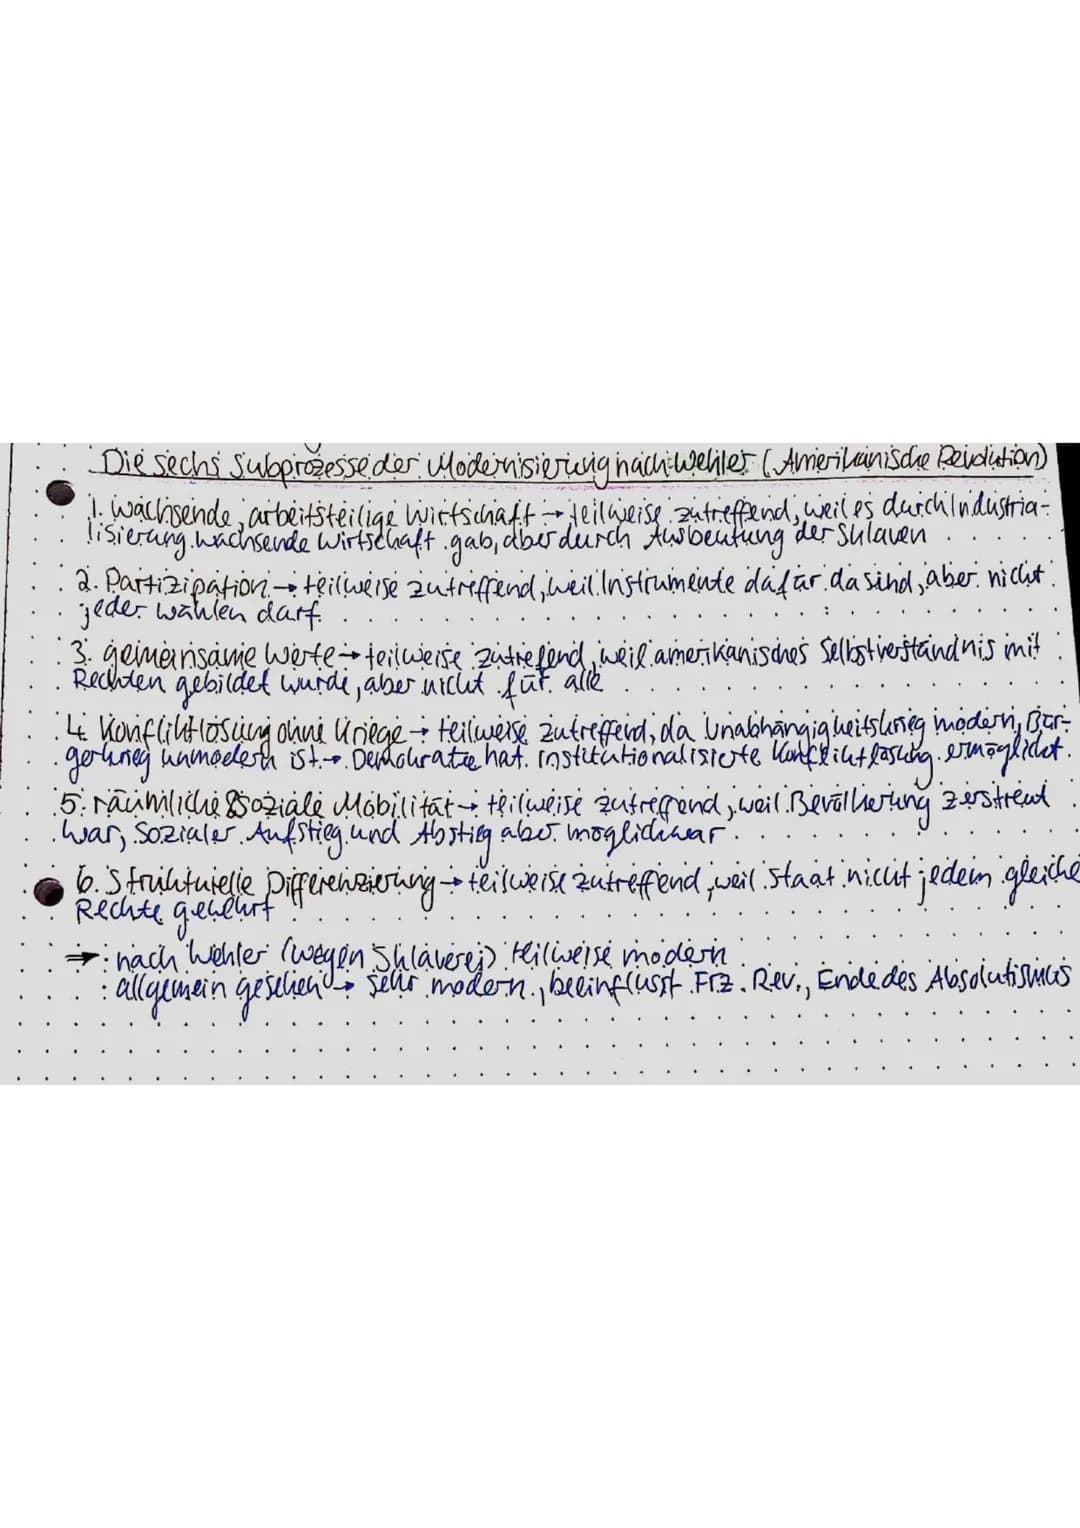 Die sechs Subprozesse der Modernisierung nach Wehler (Amerikanische Revolution)
1. wachsende, arbeitsteilige Wirtschaft → teilweise zutreffend, weil es durch Industria-
lisierung wachsende Wirtschaft gab, aber durch Ausbeutung der Sklaven
2. Partizipation → teilweise zutreffend, weil Instrumente dafür da sind, aber nicht
jeder wählen darf.
3. gemeinsame Werte → teilweise zutrefend, weil amerikanisches Selbstverständnis mit
Rechten gebildet wurde, aber nicht für alle
4. Konfliktlösung ohne Kriege → teilweise zutreffend, da Unabhängigkeitskrieg modern, Bür-
gerkrieg unmodern ist. → Demokratie hat institutionalisierte Konfliktlösung ermöglicht.
5. räumliche & soziale Mobilität → teilweise zutreffend, weil Bevölkerung zerstreut
war, sozialer Aufstieg und Abstieg aber möglich war
6. Strukturelle Differenzierung → teilweise zutreffend, weil Staat nicht jedem gleiche
Rechte gewährt
→ : nach Wehler (wegen Sklaverei) teilweise modern
: allgemein gesehen → sehr modern, beeinflusst Frz. Rev., Ende des Absolutismus